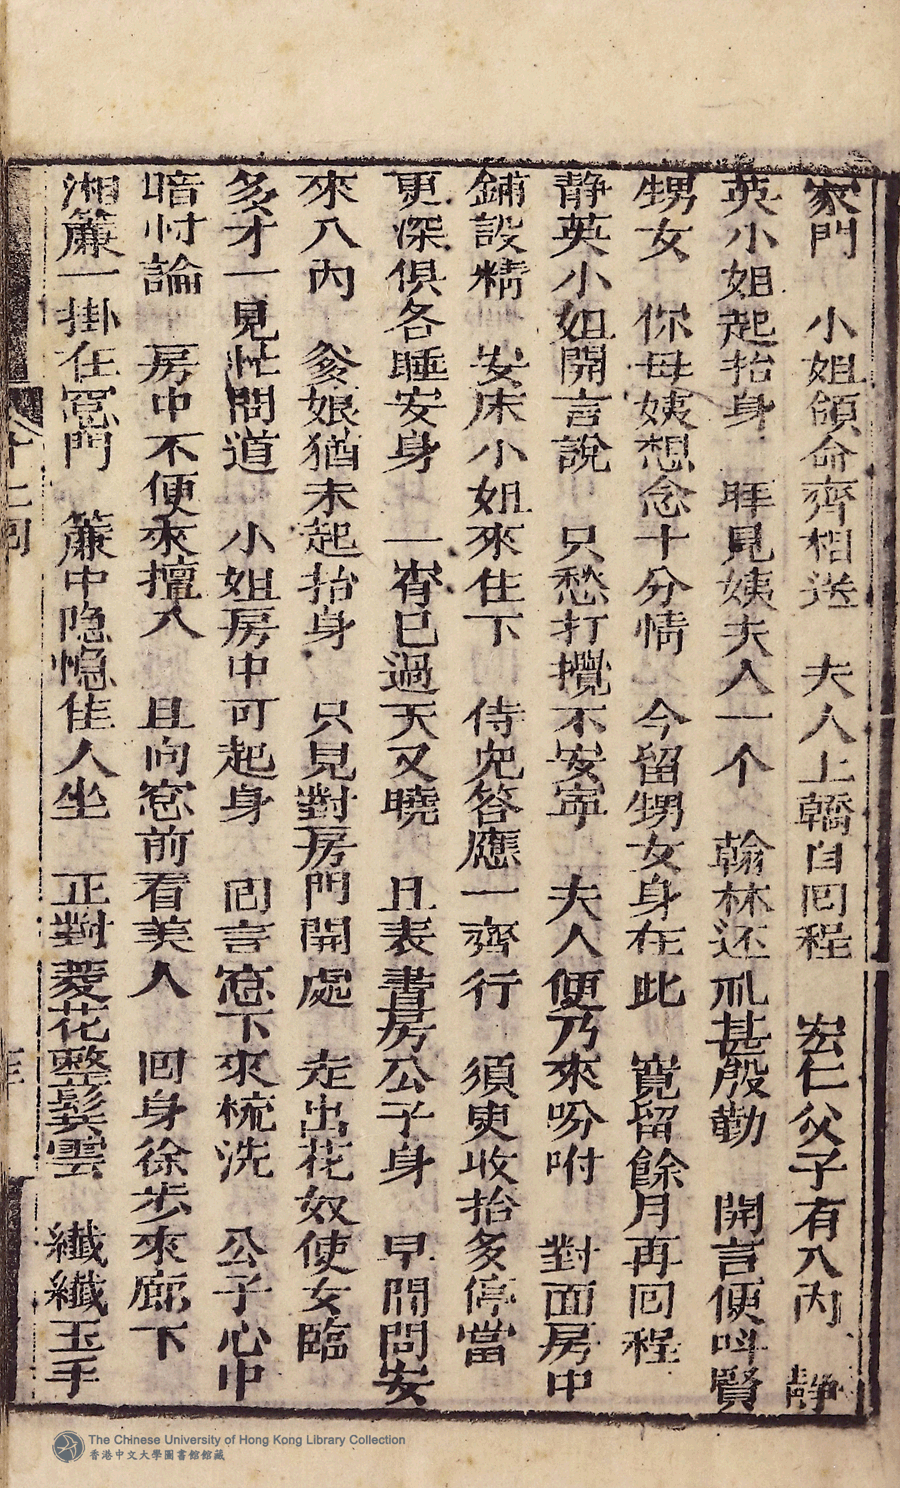 家門　小姐領命齊相送　夫人上轎自回程　宏仁父子有入內　靜
英小姐起抬身　拜見姨夫人一个　翰林还礼甚殷勤　開言便呌賢
甥女　你母姨想念十分情　今留甥女身在此　寬留餘月再回程
靜英小姐開言說　只愁打攪不安寧　夫人便乃來吩咐　對面房中
鋪設精　安床小姐來住下　侍兒答應一齊行　須臾收抬多停當
更深俱各睡安身　一宵已過天又曉　且表書房公子身　早間問安
來入內　爹娘猶未起抬身　只見對房門開處　走出花奴使女臨
多才一見忙問道　小姐房中可起身　回言窓下來梳洗　公子心中
暗忖論　房中不便來擅入　且向窓前看美人　回身徐步來廊下
湘簾一掛在窓門　簾中隐隐佳人坐　正對菱花整鬂雲　纖纖玉手
The Chinese University of Hong Kong Library Collection
香港中文大學圖書館館藏